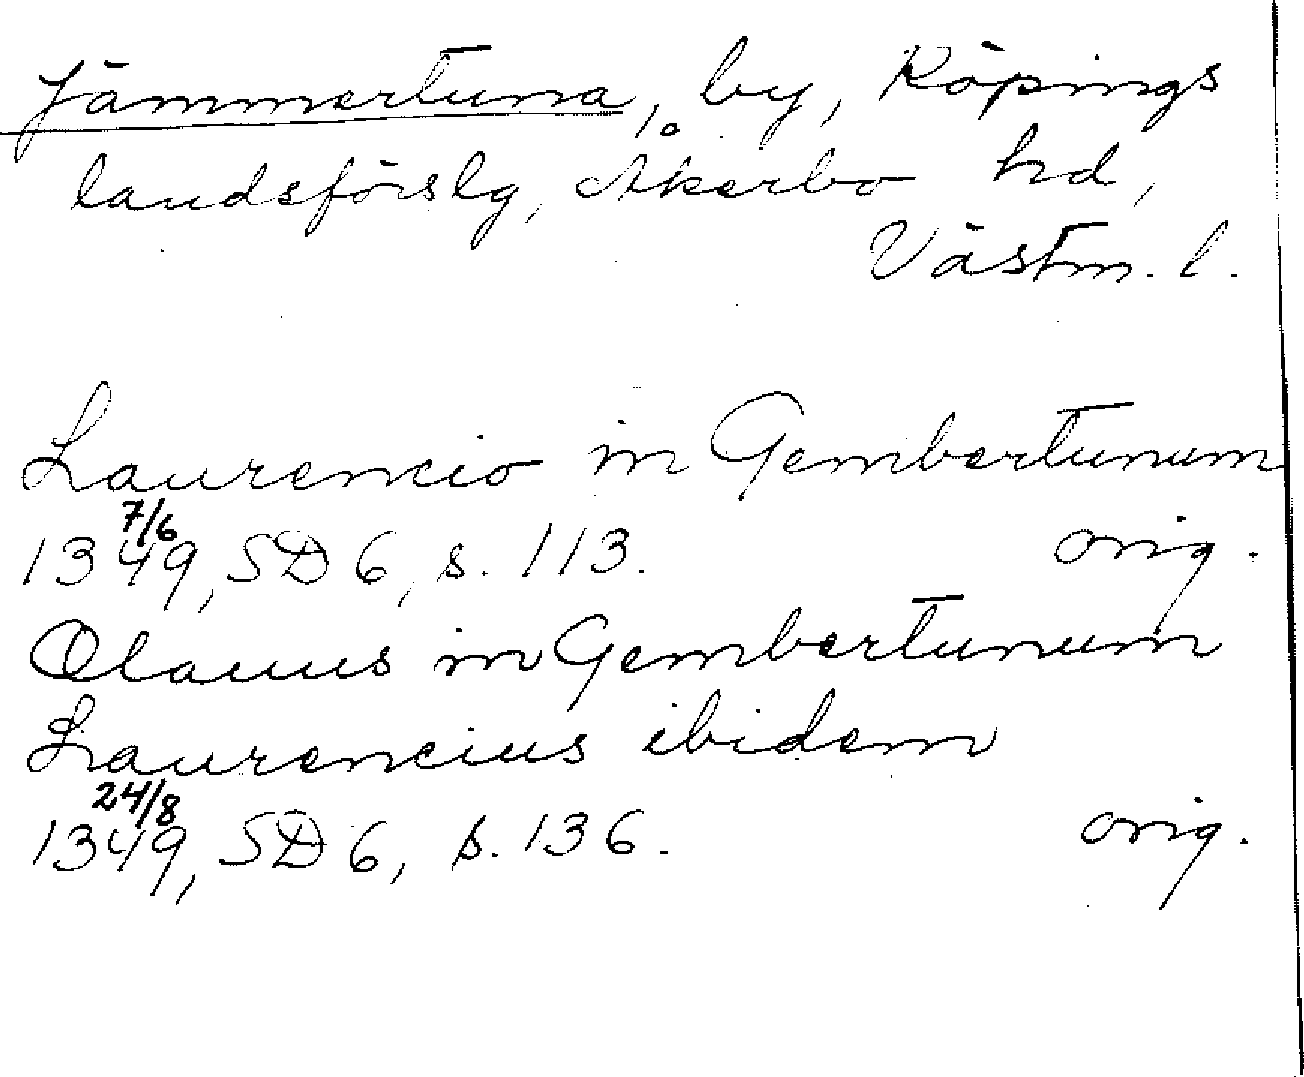 Jämmertuna, by, Köpings
landsförslg, Åkerbo hd,
Västm. l.
Laurencio in Gembertunum
7/6
1349, SD 6, s. 113. orig.
Olauus in Gembertunum
Laurencius ibidem
24/8
1349, SD 6, s. 136. orig.